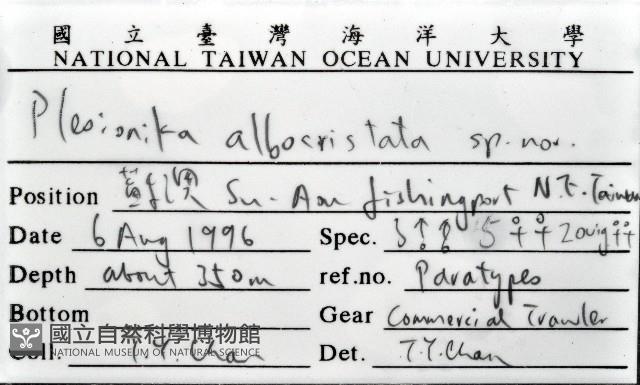 國立臺灣海洋大學
NATIONAL TAIWAN OCEAN UNIVERSITY
Plesionika albocristata sp. nov.
Position Su-Aou fishing port N.E. Taiwan
Date 6 Aug 1996 Spec. 5 ♀♀ 2 ovig ♀♀
Depth about 350m ref.no. Paratypes
Bottom Gear Commercial Trawler
國立自然科學博物館
NATIONAL MUSEUM OF NATURAL SCIENCE
Coll. T.Y. Chan Det. T.Y. Chan